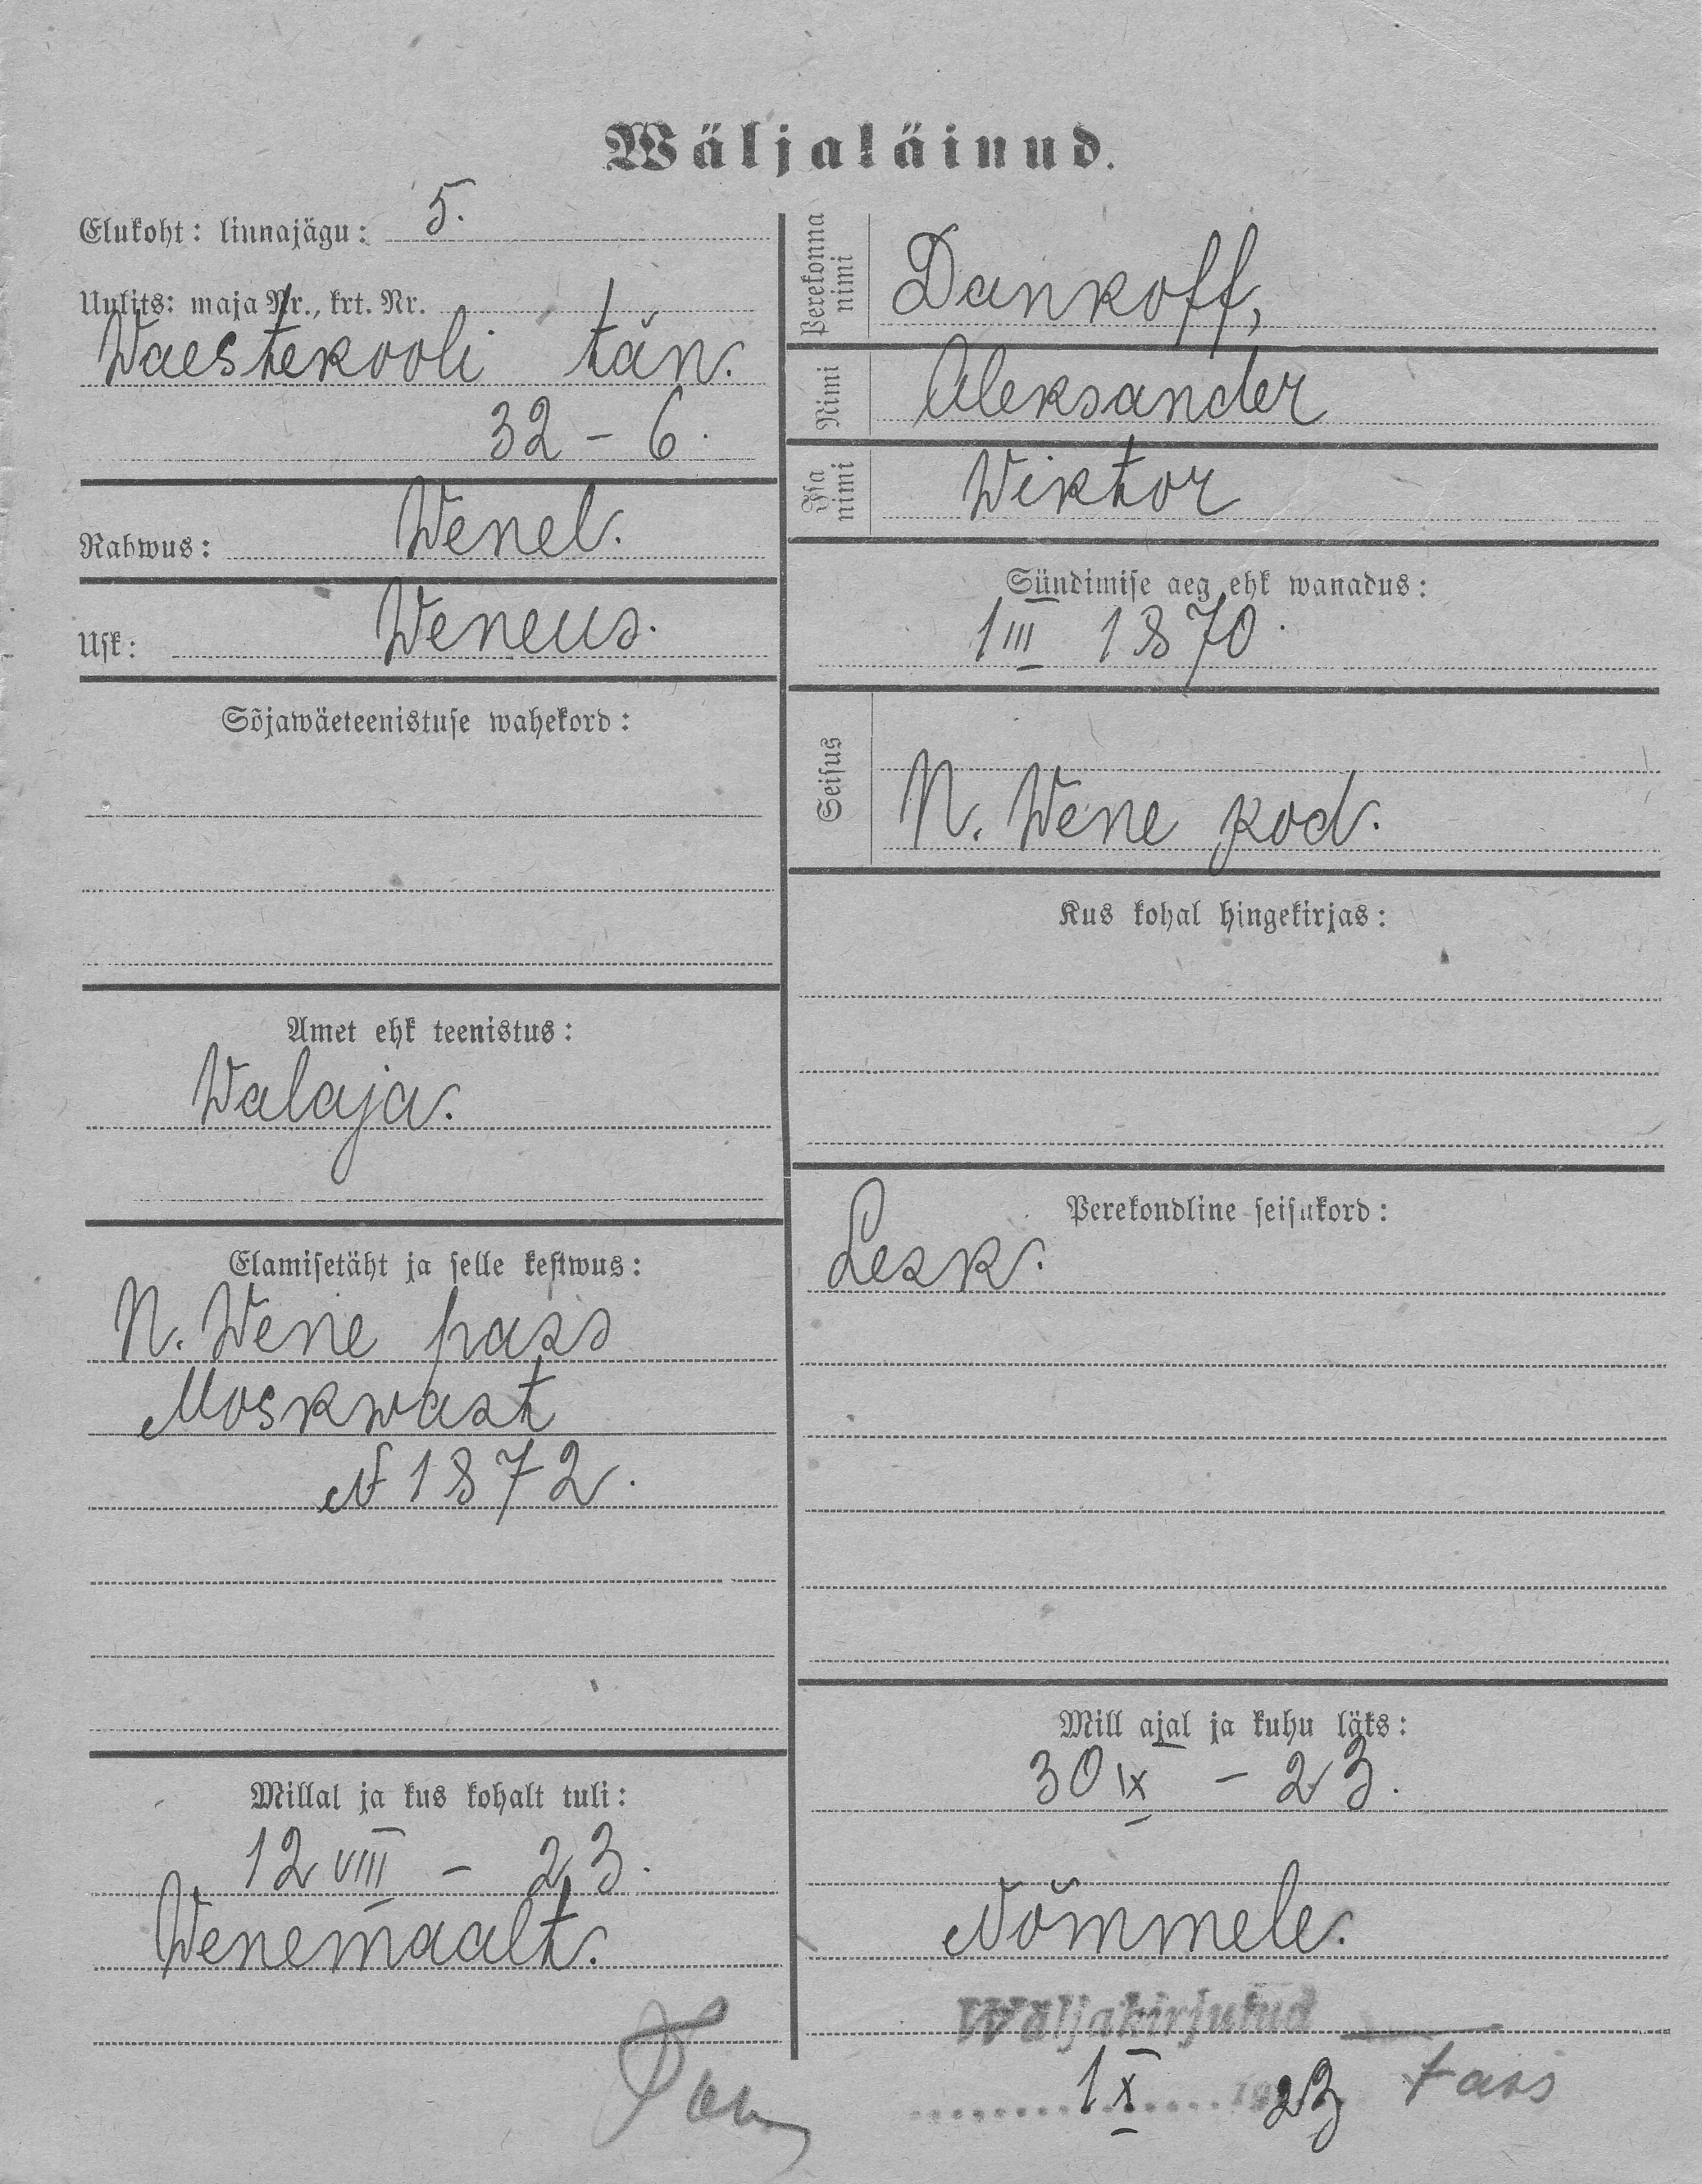 Wäljaläinud.
Elukoht: linnajägu: 5.
Uulits: maja Nr., krt. Nr.
Waestekooli tän.
32 - 6.
Rahwus: Wenel.
Usk: Weneus.
Sõjawäeteenistuse wahekord:
Amet ehk teenistus:
Walaja.
Elamisetäht ja selle kestwus:
N. Wene pass
Moskwast
N 1872.
Millal ja kus kohalt tuli:
12 VIII - 23.
Wenemaalt.
Perekonna nimi Dankoff,
Nimi Aleksander
Isa nimi Wiktor
Sündimise aeg ehk wanadus:
1 III 1870.
Seisus
N. Wene kod.
Kus kohal hingekirjas:
Perekondline seisukord:
Lesk.
Mill ajal ja kuhu läks:
30 IX - 23.
Nõmmele.
Wäljakirjutud
1 X 1923